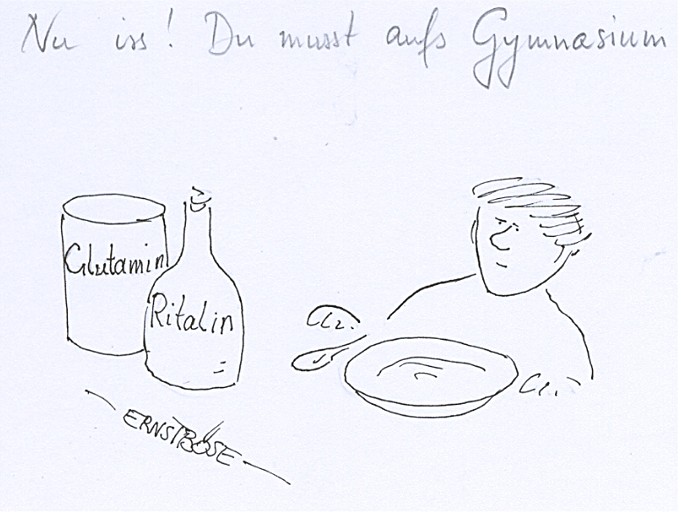 Nu iss! Du musst aufs Gymnasium
Glutamin
Ritalin
ERNSTBÖSE